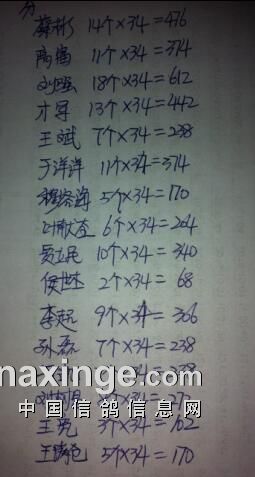 分
蔡彬 14个×34=476
陈鹤 11个×34=374
刘强 18个×34=612
才军 13个×34=442
王斌 7个×34=238
于洋洋 11个×34=374
5个×34=170
6个×34=204
贾立民 10个×34=340
侯世杰 2个×34=68
李超 9个×34=366
孙磊 7个×34=238
naxinge.com
中国信鸽信息网
王亮 3个×34=102
5个×34=170